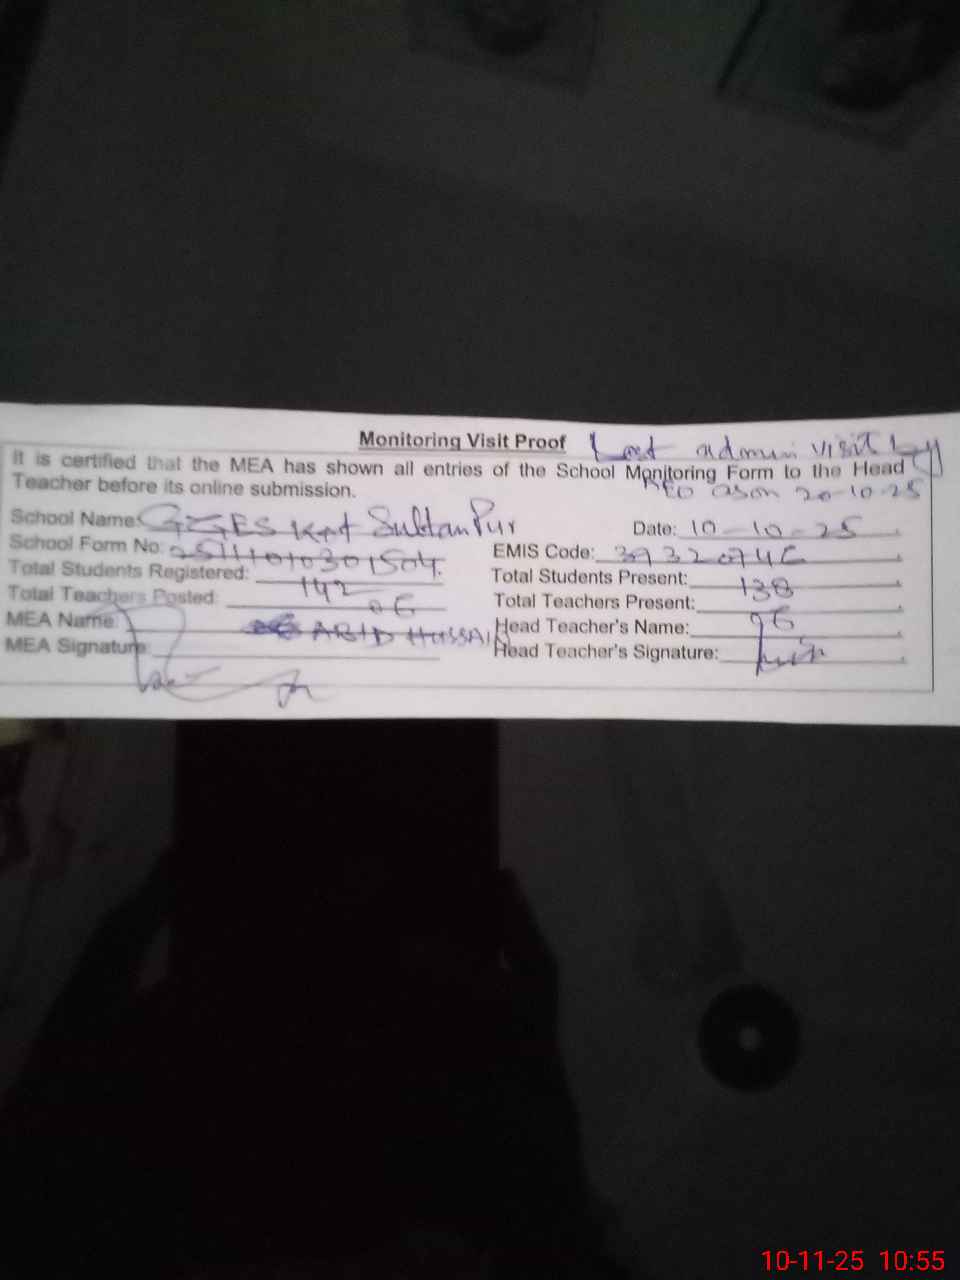 Monitoring Visit Proof Last admin visit by
It is certified that the MEA has shown all entries of the School Monitoring Form to the Head
Teacher before its online submission. AEO as on 20-10-25
School Name: GGES Kot Sultan Pur Date: 10-10-25
School Form No: EMIS Code:
Total Students Registered: 142 Total Students Present: 138
Total Teachers Posted: 06 Total Teachers Present: 06
MEA Name: ABID HUSSAIN Head Teacher's Name:
MEA Signature: Head Teacher's Signature:
10-11-25 10:55